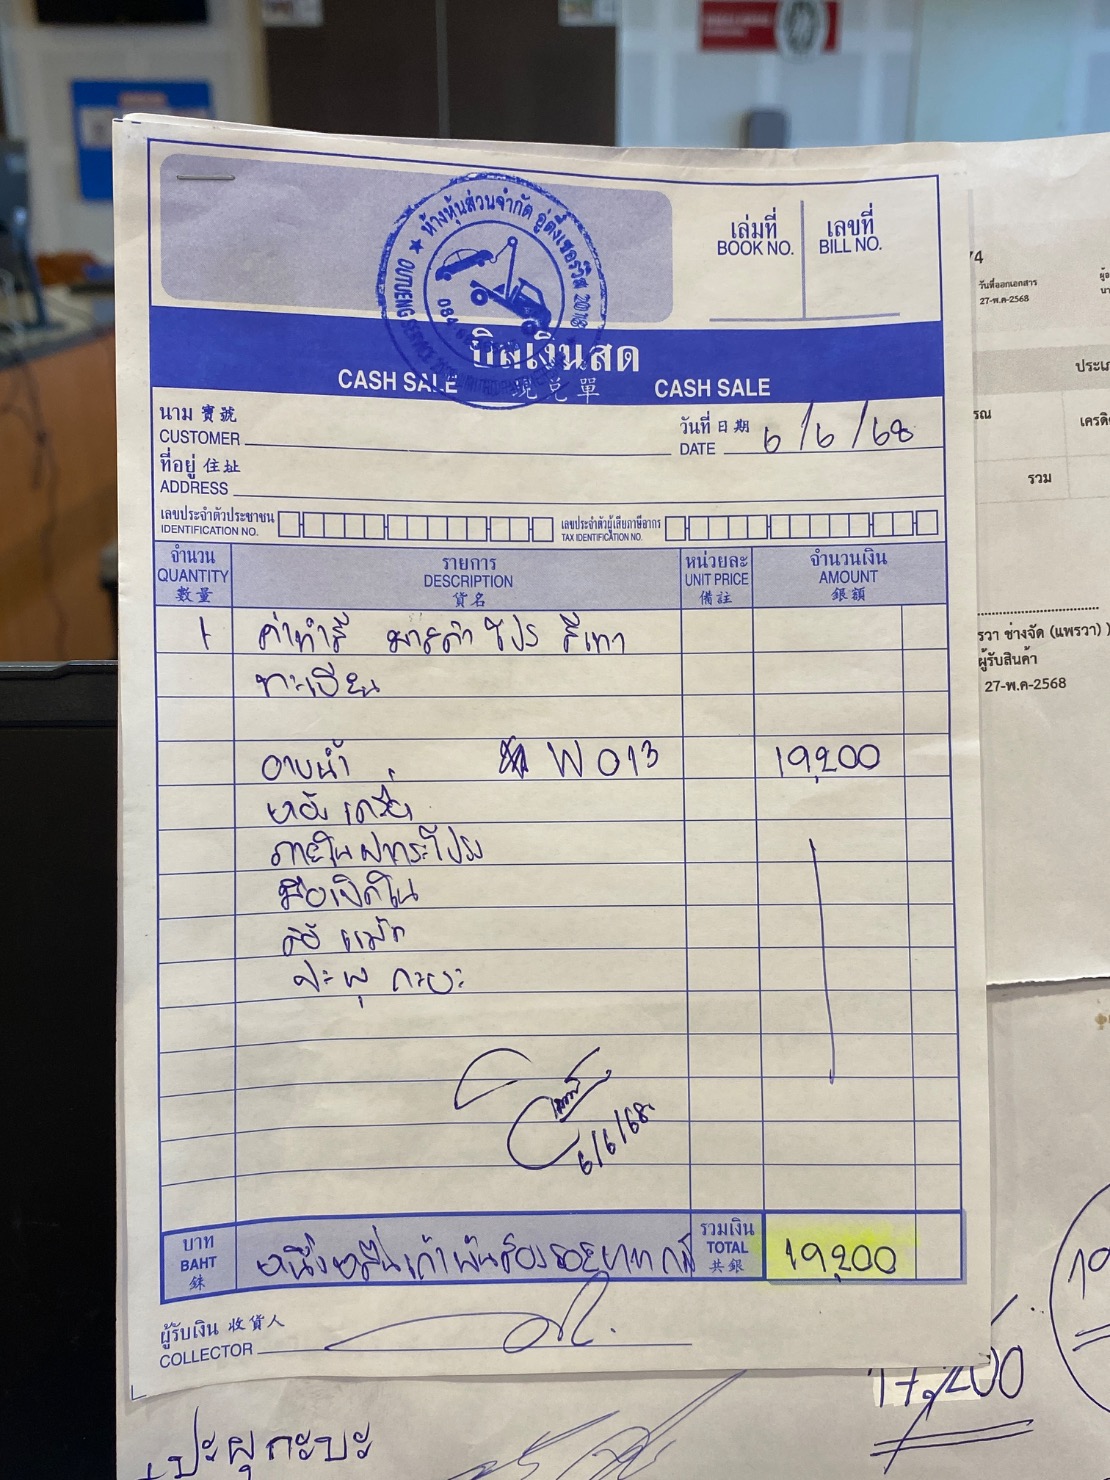 ห้างหุ้นส่วนจำกัด อู่ตึ๋งเซอร์วิส 2018
OUTUENG SERVICE
084
เล่มที่
BOOK NO.
เลขที่
BILL NO.
บิลเงินสด
CASH SALE 現兌單 CASH SALE
นาม 寶號
CUSTOMER
วันที่ 日期
DATE 6/6/68
ที่อยู่ 住址
ADDRESS
เลขประจำตัวประชาชน
IDENTIFICATION NO.
เลขประจำตัวผู้เสียภาษีอากร
TAX IDENTIFICATION NO.
จำนวน รายการ หน่วยละ จำนวนเงิน
QUANTITY DESCRIPTION UNIT PRICE AMOUNT
數量 貨名 備註 銀額
1 ค่าทำสี มาสด้า โปร สีเทา
ทะเบียน
อาบน้ำ W 013 19,200
ห้องเครื่อง
ภายในฝากระโปรง
มือเปิดใน
ปะผุ กะบะ
6/6/68
บาท
BAHT
銖
หนึ่งหมื่นเก้าพันสองร้อยบาท
รวมเงิน
TOTAL
共銀
19,200
ผู้รับเงิน 收貨人
COLLECTOR
74
วันที่ออกเอกสาร
27-พ.ค-2568
ประเภ
รณ
เครดิต
รวม
รวา ช่างจัด (แพรวา) )
ผู้รับสินค้า
27-พ.ค-2568
17,200
ปะผุกะบะ